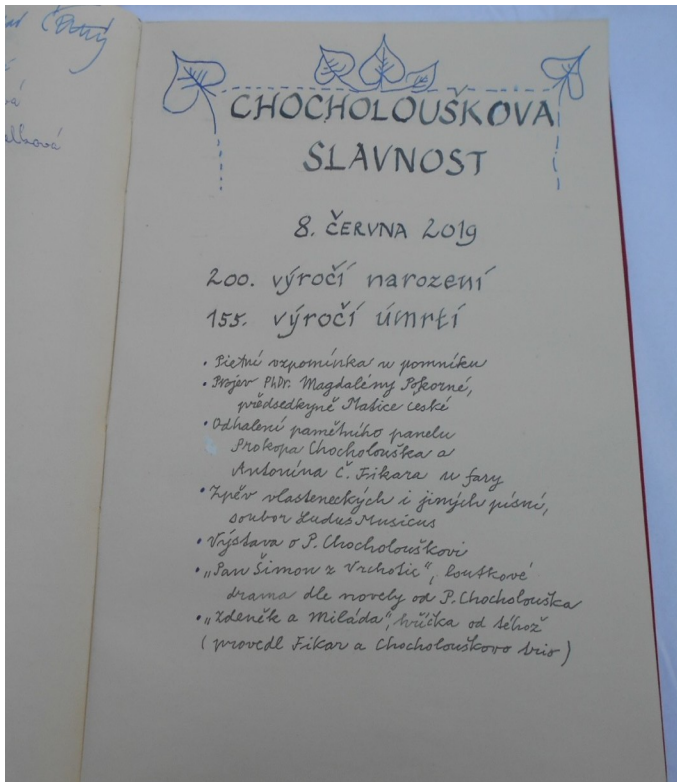 Černý
vá
alková
CHOCHOLOUŠKOVA
SLAVNOST
8. ČERVNA 2019
200. výročí narození
155. výročí úmrtí
• Pietní vzpomínka u pomníku
• Projev PhDr. Magdalény Pokorné,
předsedkyně Matice české
• Odhalení pamětního panelu
Prokopa Chocholouška a
Antonína Č. Fikara u fary
• Zpěv vlasteneckých i jiných písní,
soubor Ludus Musicus
• Výstava o P. Chocholouškovi
• „Pan Šimon z Vrchotic“, loutkové
drama dle novely od P. Chocholouška
• „Zdeněk a Miláda“, hříčka od téhož
(provedl Fikar a Chocholouškovo trio)